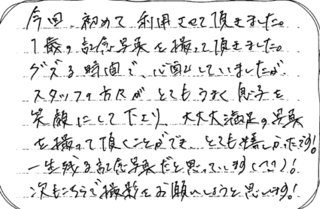 今回、初めて利用させて頂きました。
1歳の記念写真を撮って頂きました。
グズる時間で、心配していましたが
スタッフの方々がとてもうまく息子を
笑顔にして下さり、大大大満足の写真
を撮って頂くことができ、とても嬉しかったです!
一生残る記念写真だと思っています(^^)!
次もこちらで撮影をお願いしようと思います!